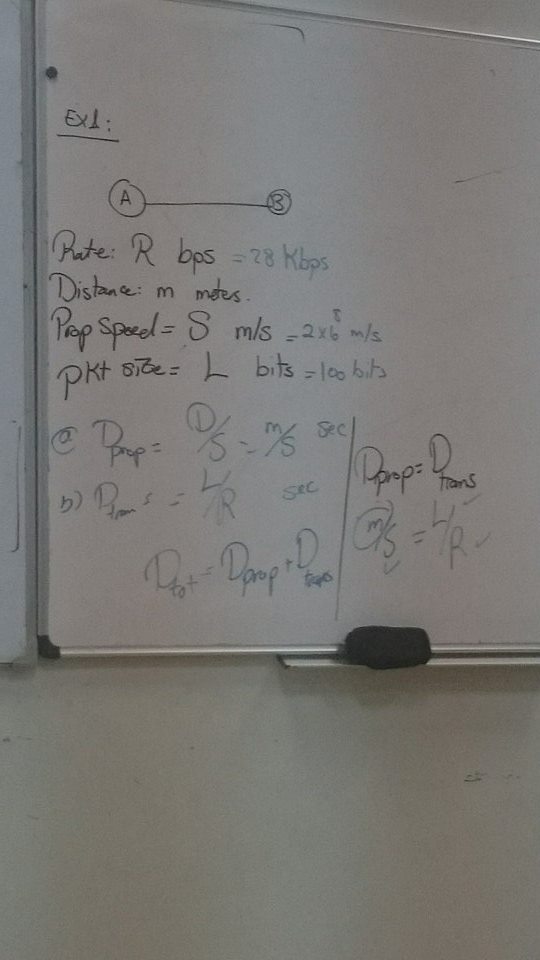 Ex1:
A B
Rate: R bps = 28 Kbps
Distance: m meters.
Prop Speed = S m/s = 2x10^8 m/s
pkt size = L bits = 100 bits
a) Dprop = D/S = m/S sec
b) Dtrans = L/R sec
Dtot = Dprop + Dtrans
Dprop = Dtrans
m/S = L/R